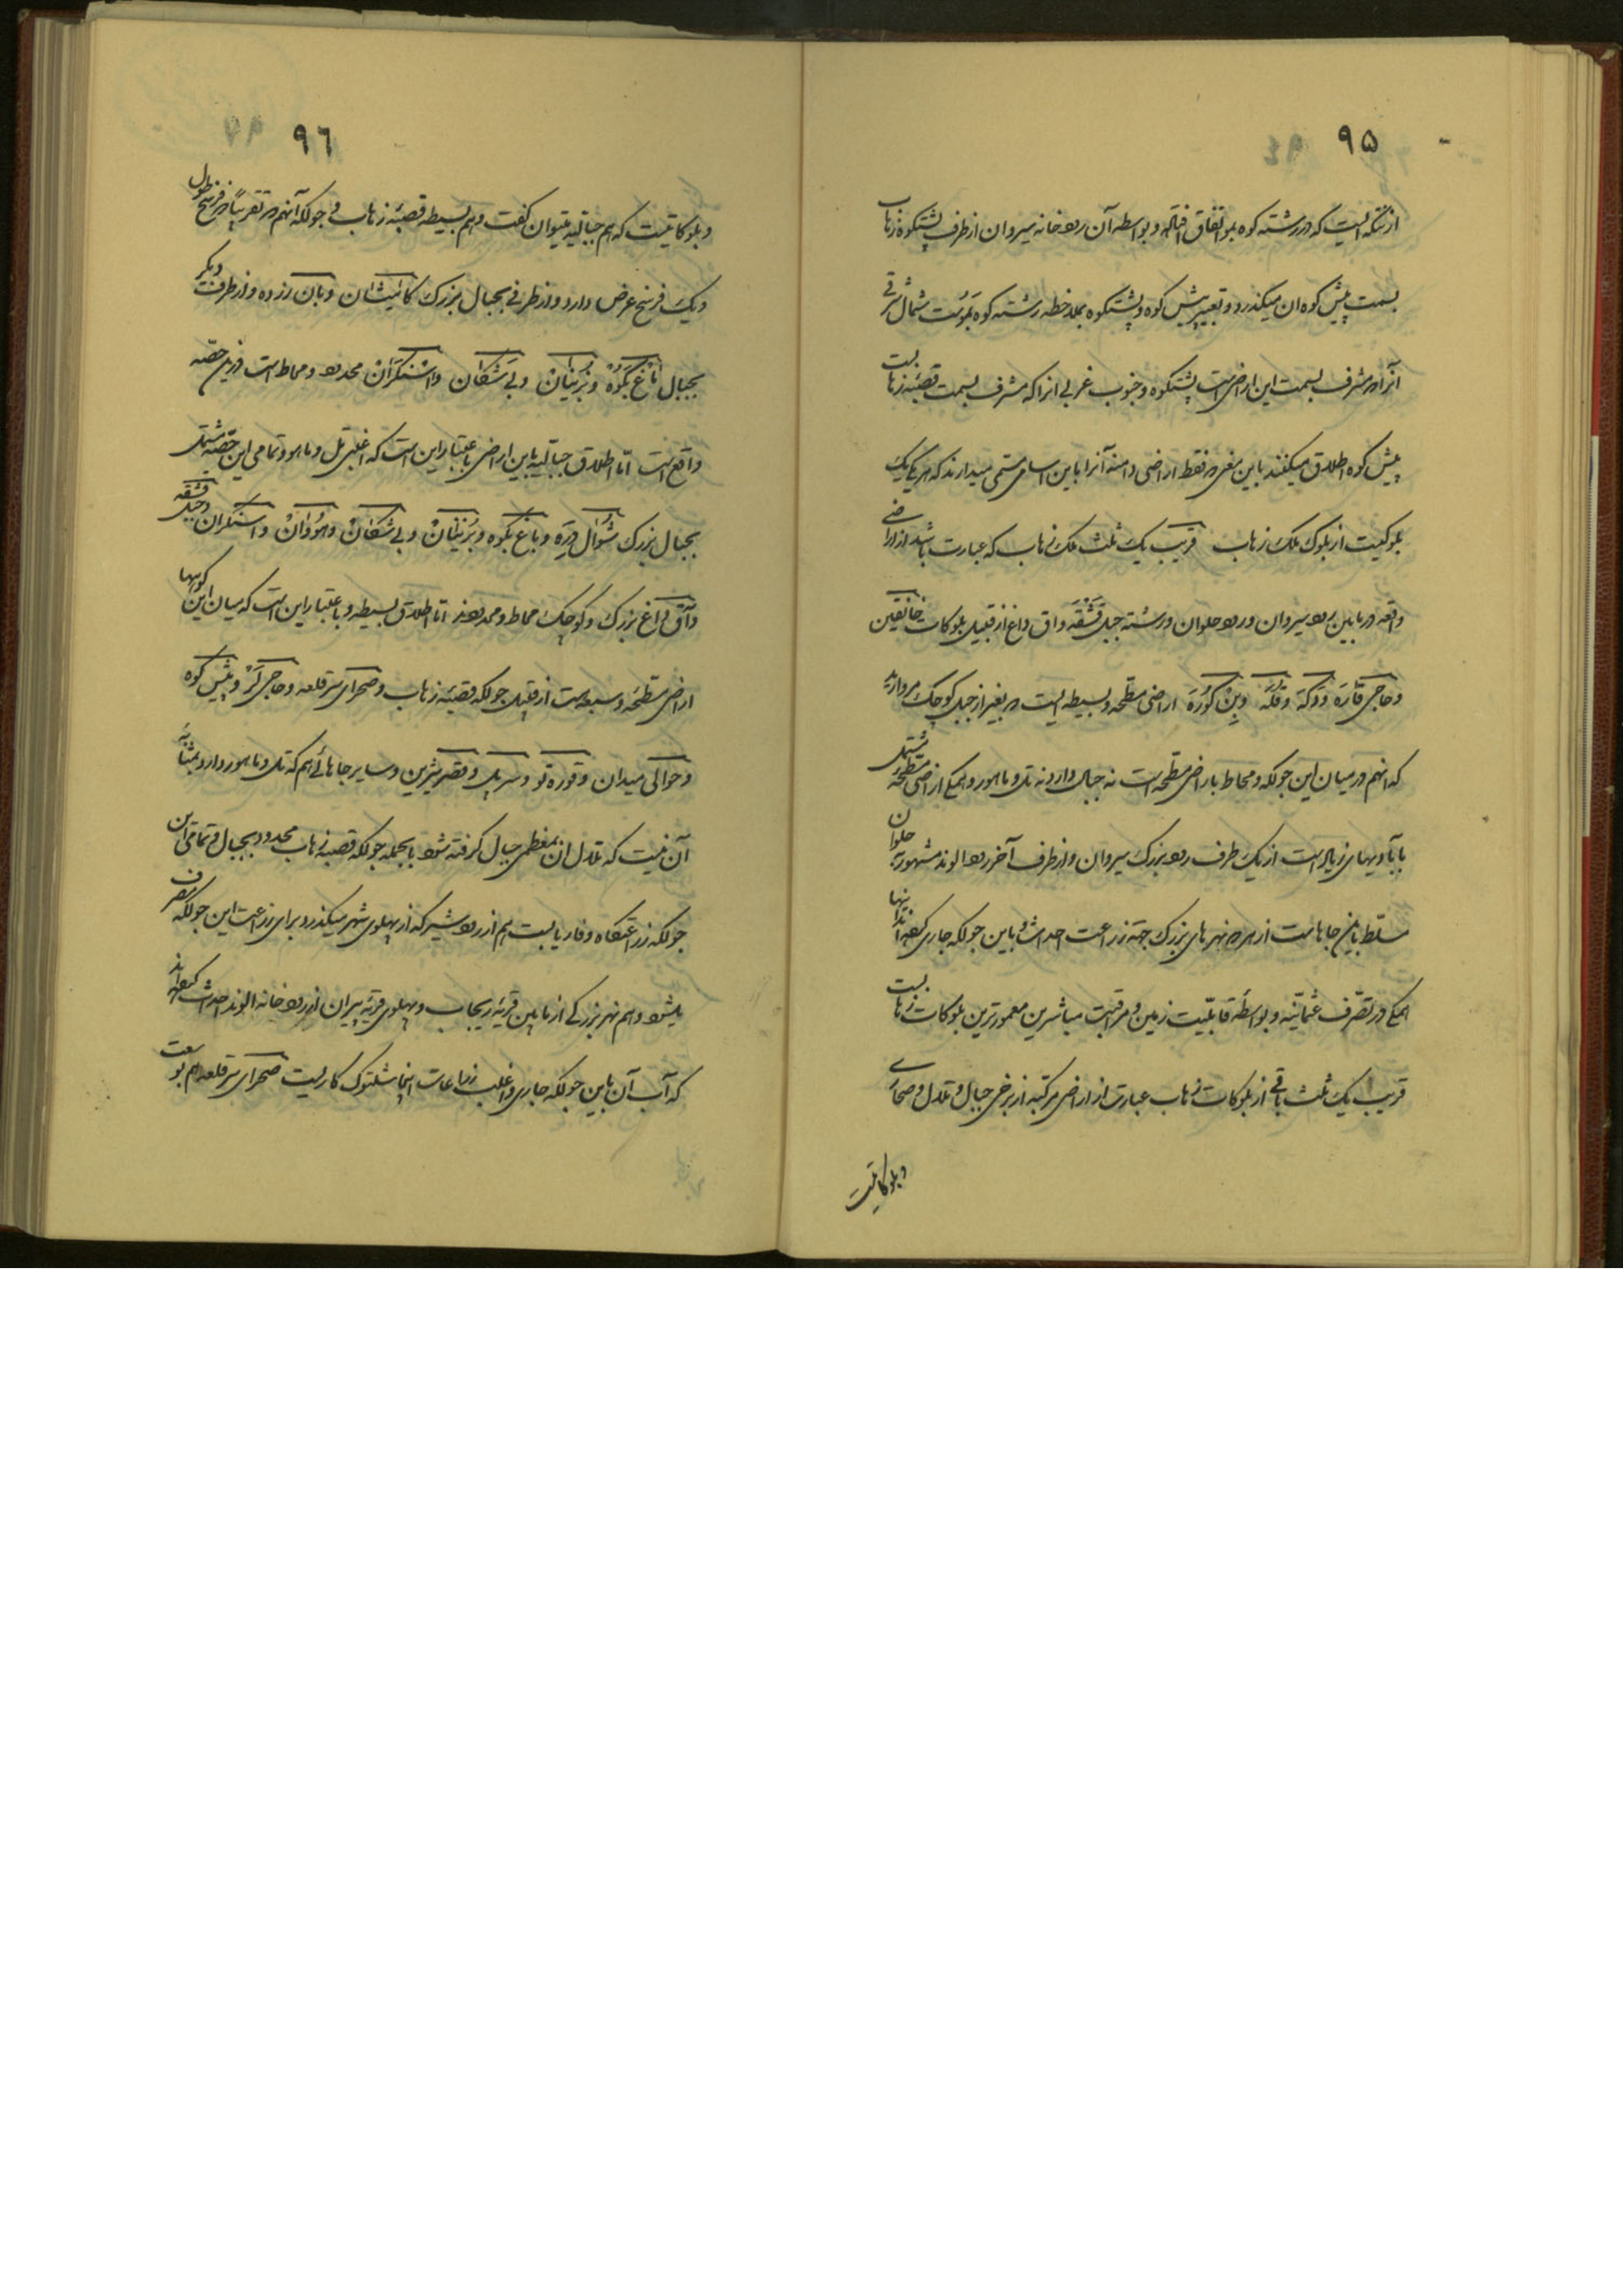 ۹۵
از تنگه ایست که در رشته کوه بمو اتفاق افتاده و بواسطه آن رودخانه سیروان از طرف پشتکوه زهاب
بسمت پیش کوه ان میگذرد و تعبیر پیش کوه و پشتکوه بملاحظه رشته کوه بموست شمال شرقی
آنرا که مشرف بسمت این اراضی است پشتکوه و جنوب غربی انرا که مشرف بسمت قصبه زهابست
پیش کوه اطلاق میکنند باین معنی که فقط اراضی دامنه آنرا باین اسامی مسمی میدارند که هر یکی یک
بلوکیست از بلوک ملک زهاب قریب یک ثلث ملک زهاب که عبارت باشد از اراضی
واقعه در مابین رود سیروان و رود حلوان و رشته جبل قشقه و اق داغ از قبیل بلوکات خانقین
و حاجی قاره و دکه و قلمه و بن کوره اراضی مسطحه و بسیطه ایست که بغیر از جبل کوچک مروارید
که انهم در میان این جولکه و محاط باراضی مسطحه است نه جبال دارد نه تل و ماهور و همگی اراضی مسطحه مشتمل
بآبادیهای زیاد است از یک طرف رود بزرک سیروان و از طرف آخر رود الوند مشهور به حلوان
مسلط باین جاهاست از هر دو نهرهای بزرک جهة زراعت احداث و باین جولکه جاری کرده اند اینها
همگی در تصرف عثمانیه و بواسطه قابلیت زمین و مراقبت مباشرین معمورترین بلوکات زهابست
قریب یک ثلث باقی از بلوکات زهاب عبارت از اراضی مرکبه از برخی جبال و تلال و صحاری
و بلوکاتیست
۹٦
و بلوکاتیست که هم جبالیه میتوان گفت و هم بسیطه قصبه زهاب و جولکه آنهم که تقریباً دو فرسخ طول
و یک فرسخ عرض دارد و از طرفی بجبال بزرک کانیشان و بان زرده و از طرف دیگر
بجبال باغ بکوه و بزنیان و بی شکان و اشنکران محدود و محاط است در این حصه
واقع است امّا اطلاق جبالیه باین اراضی باعتبار این است که اغلبی تل و ماهور و تمامی این حصّه مشتمل
بجبال بزرک شوال دره و باغ بکوه و بزنیان و بی شکان و هووان و اشنکران و جبل قشقه
و آق داغ بزرک و کوچک محاط و محدودند امّا اطلاق بسیطه و باعتبار این است که میان این کوهها
اراضی مسطحه وسیعه است از قبیل جولکه قصبه زهاب و صحرای سر قلعه و حاجی لر و پیش کوه
و حوالی میدان و قوره تو و سر پل و قصر شیرین و سایر جاهائی هم که تل و ماهور دارد بمثابه
آن نیست که تلال ان بمعظمی جبال گرفته شود بالجمله جولکه قصبه زهاب محدود بجبال و تمامی این
جولکه زراعتگاه و فاریابست هم از رود شیر که از پهلوی شهر میکذرد برای زراعت این جولکه صرف
میشود و هم نهر بزرگی از پایین قریه ریجاب و پهلوی قریه پیران از رودخانه الوند احداث کرده اند
که آب آن باین جولکه جاری و اغلب زراعات اینجا شلتوک کاریست صحرای سر قلعه هم بوسعت